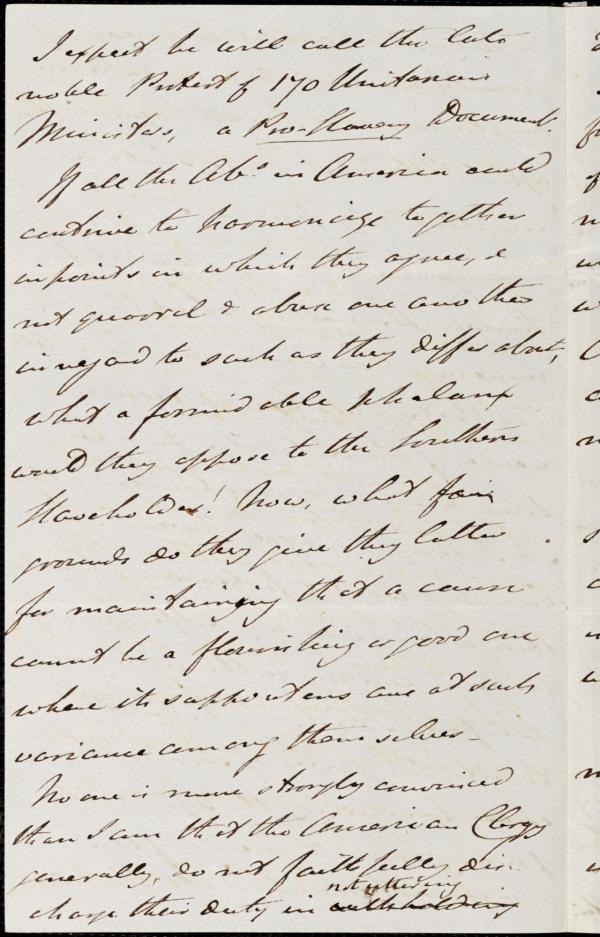 I expect he will call the late
noble Protest of 170 Unitarian
Ministers, a Pro-Slavery Document.
If all the Abs. in America could
contrive to harmonize together
in points in which they agree, &
not quarrel & abuse one another
in regard to such as they differ about,
what a formidable phalanx
would they oppose to the Southern
Slaveholder! Now, what fair
grounds do they give they latter
for maintaining that a cause
cannot be a flourishing or good one
where its supporters are at such
variance among themselves -
No one is more strongly convinced
than I am that the American Clergy
generally, do not faithfully dis-
not uttering
charge their duty in withholding